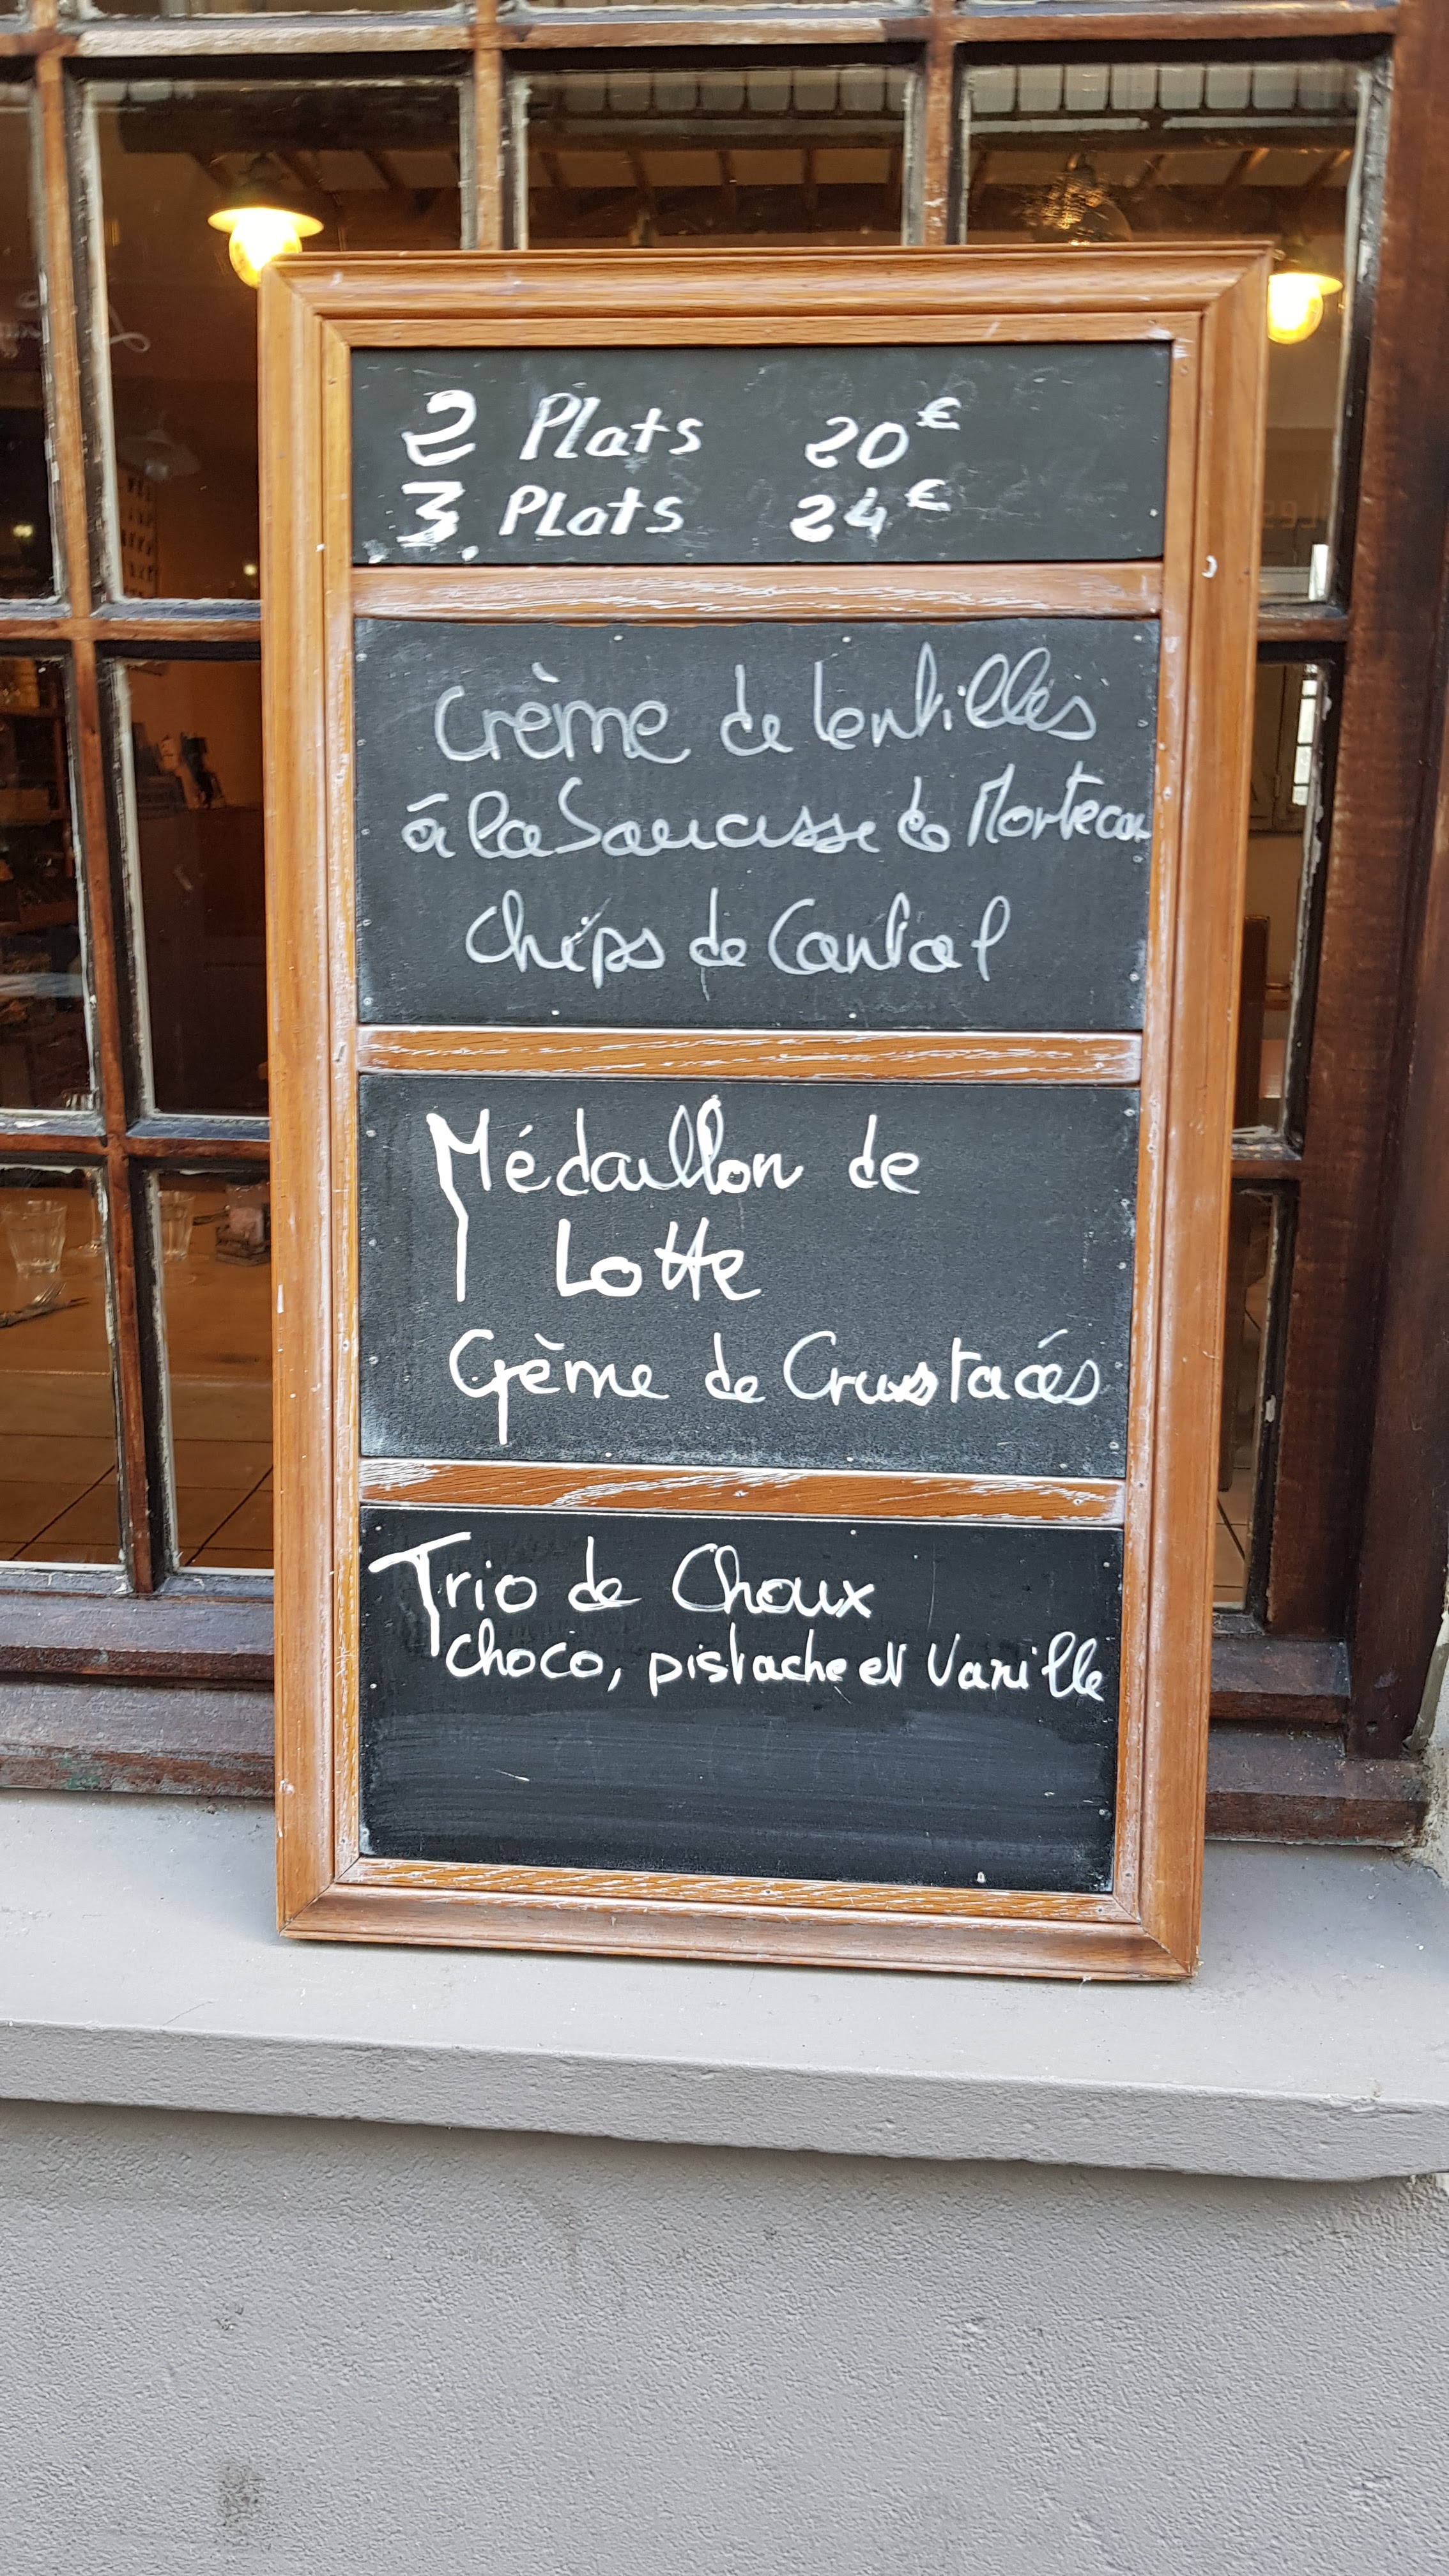 2 Plats 20€
3 Plats 24€
Crème de lentilles
à la Saucisse de Morteau
Chips de Cantal
Médaillon de
Lotte
Crème de Crustacés
Trio de Choux
Choco, pistache et Vanille